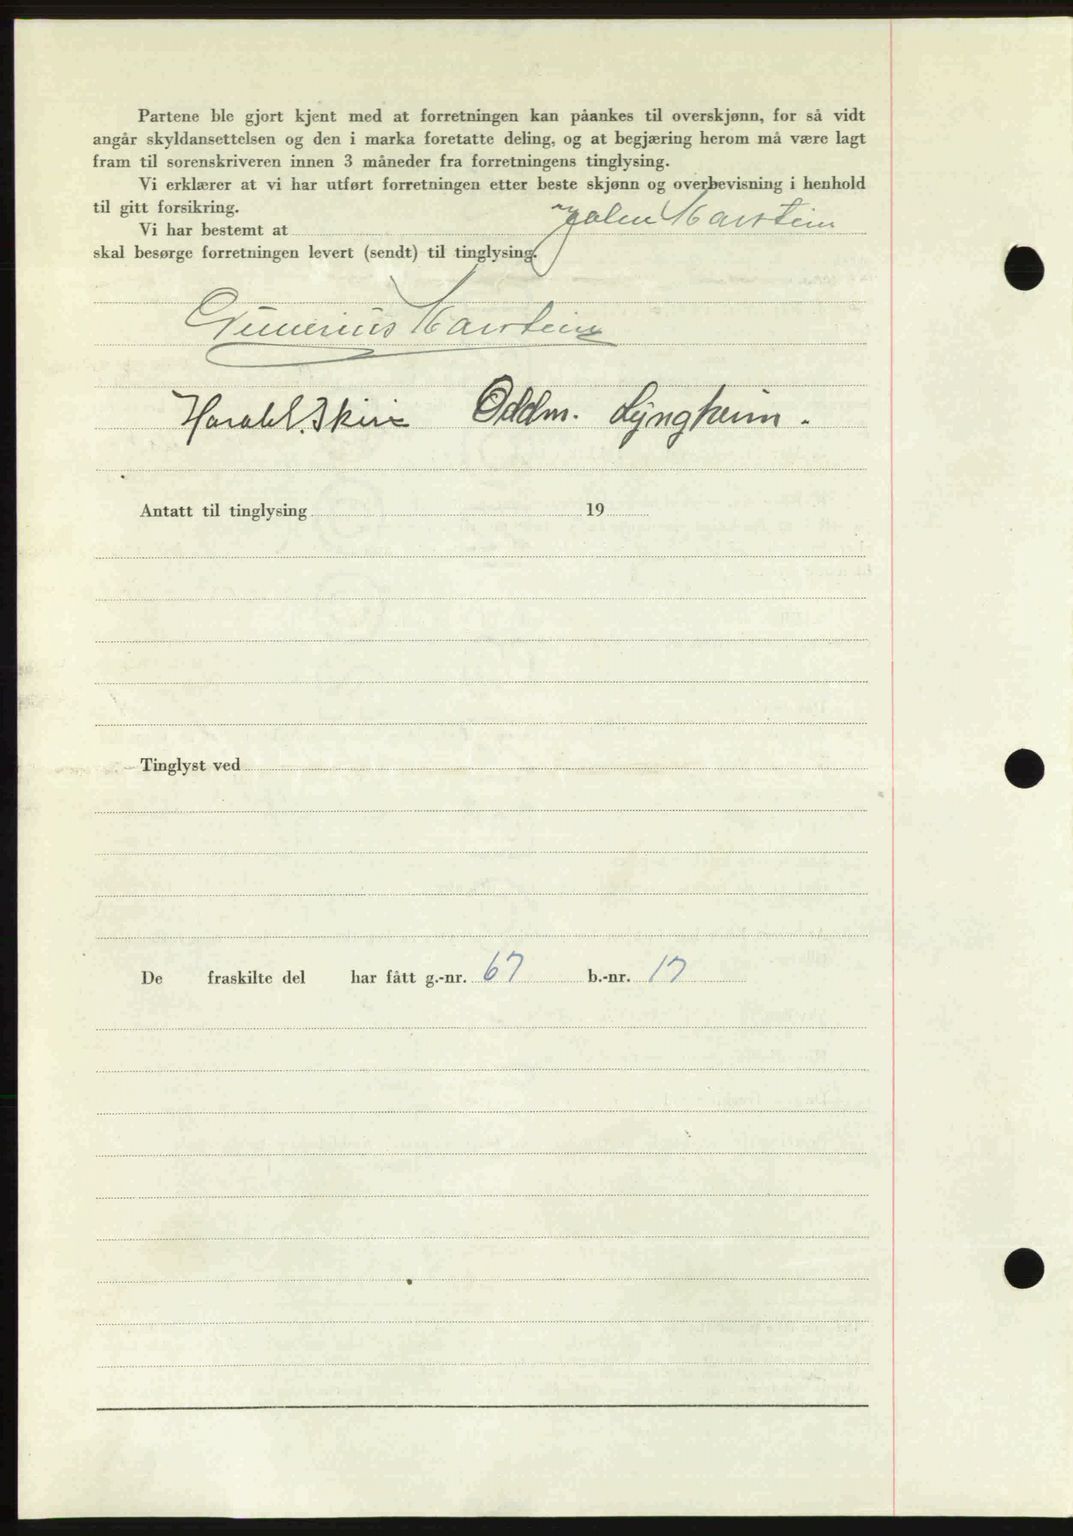 Partene ble gjort kjent med at forretningen kan påankes til overskjønn, for så vidt
angår skyldansettelsen og den i marka foretatte deling, og at begjæring herom må være lagt
fram til sorenskriveren innen 3 måneder fra forretningens tinglysing.
Vi erklærer at vi har utført forretningen etter beste skjønn og overbevisning i henhold
til gitt forsikring.
Vi har bestemt at Harstein
skal besørge forretningen levert (sendt) til tinglysing.
Gunerius Harstein
Harald Oddm. Lyngheim.
Antatt til tinglysing 19
Tinglyst ved
De fraskilte del har fått g.-nr. 67 b.-nr. 17